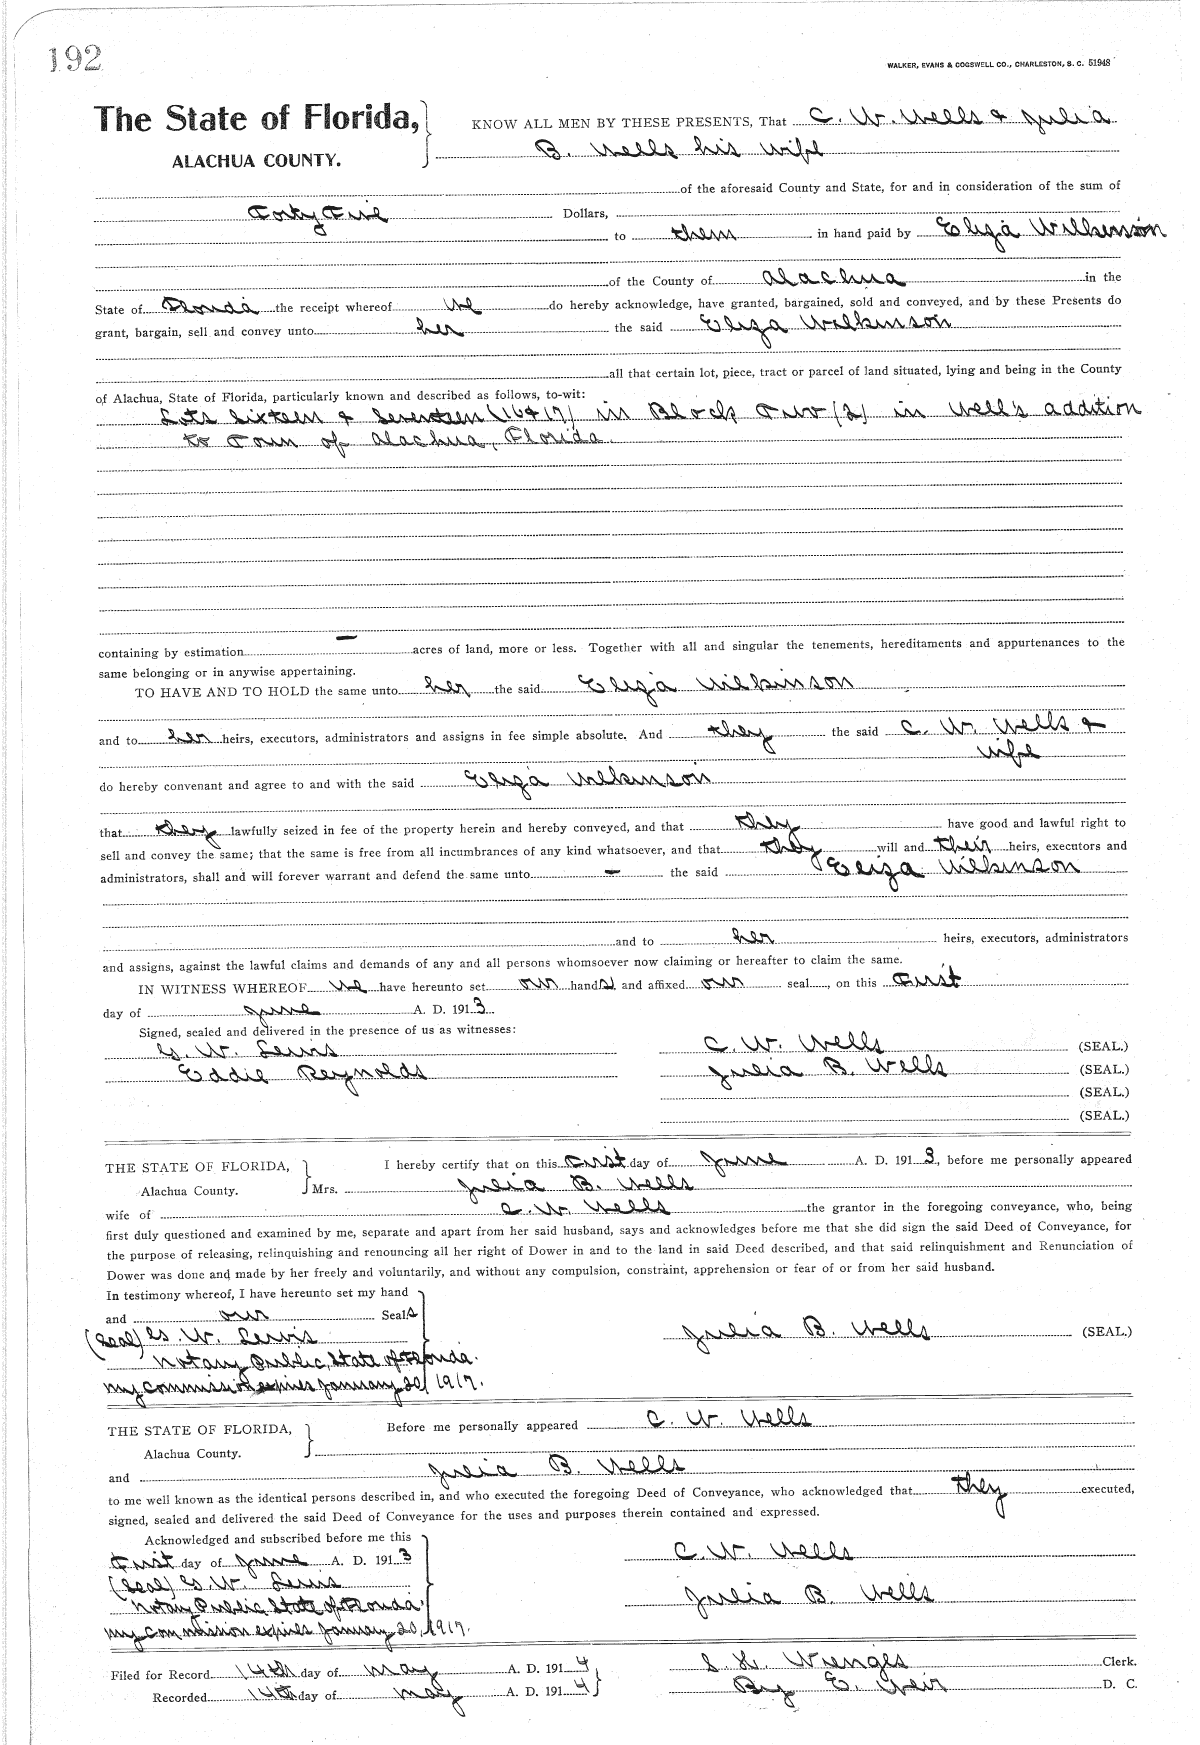 192
WALKER, EVANS & COGSWELL CO., CHARLESTON, S. C. 51948
The State of Florida, KNOW ALL MEN BY THESE PRESENTS, That C. W. Wells & Julia
ALACHUA COUNTY. B. Wells his wife
of the aforesaid County and State, for and in consideration of the sum of
Forty Five Dollars,
to them in hand paid by Eliza Wilkinson
of the County of Alachua in the
State of Florida the receipt whereof we do hereby acknowledge, have granted, bargained, sold and conveyed, and by these Presents do
grant, bargain, sell and convey unto her the said Eliza Wilkinson
all that certain lot, piece, tract or parcel of land situated, lying and being in the County
of Alachua, State of Florida, particularly known and described as follows, to-wit:
Lots Sixteen & Seventeen (16&17) in Block Two (2) in Well's addition
to Town of Alachua, Florida.
containing by estimation — acres of land, more or less. Together with all and singular the tenements, hereditaments and appurtenances to the
same belonging or in anywise appertaining.
TO HAVE AND TO HOLD the same unto her the said Eliza Wilkinson
and to her heirs, executors, administrators and assigns in fee simple absolute. And they the said C. W. Wells &
wife
do hereby convenant and agree to and with the said Eliza Wilkinson
that they lawfully seized in fee of the property herein and hereby conveyed, and that they have good and lawful right to
sell and convey the same; that the same is free from all incumbrances of any kind whatsoever, and that they will and their heirs, executors and
administrators, shall and will forever warrant and defend the same unto — the said Eliza Wilkinson
and to her heirs, executors, administrators
and assigns, against the lawful claims and demands of any and all persons whomsoever now claiming or hereafter to claim the same.
IN WITNESS WHEREOF we have hereunto set our hands and affixed our seal, on this First
day of June A. D. 1913
Signed, sealed and delivered in the presence of us as witnesses:
G. W. Lewis C. W. Wells (SEAL.)
Eddie Reynolds Julia B. Wells (SEAL.)
(SEAL.)
(SEAL.)
THE STATE OF FLORIDA, I hereby certify that on this First day of June A. D. 1913, before me personally appeared
Alachua County. Mrs. Julia B. Wells
wife of C. W. Wells the grantor in the foregoing conveyance, who, being
first duly questioned and examined by me, separate and apart from her said husband, says and acknowledges before me that she did sign the said Deed of Conveyance, for
the purpose of releasing, relinquishing and renouncing all her right of Dower in and to the land in said Deed described, and that said relinquishment and Renunciation of
Dower was done and made by her freely and voluntarily, and without any compulsion, constraint, apprehension or fear of or from her said husband.
In testimony whereof, I have hereunto set my hand
and our Seals
(Seal) G. W. Lewis Julia B. Wells (SEAL.)
Notary Public, State of Florida.
my commission expires January 20, 1917.
THE STATE OF FLORIDA, Before me personally appeared C. W. Wells
Alachua County.
and Julia B. Wells
to me well known as the identical persons described in, and who executed the foregoing Deed of Conveyance, who acknowledged that they executed,
signed, sealed and delivered the said Deed of Conveyance for the uses and purposes therein contained and expressed.
Acknowledged and subscribed before me this
First day of June A. D. 1913 C. W. Wells
(Seal) G. W. Lewis
Notary Public State of Florida Julia B. Wells
my commission expires January 20, 1917.
Filed for Record 14th day of May A. D. 1914 S. H. Wienges Clerk.
Recorded 14th day of May A. D. 1914 By E. Weir D. C.